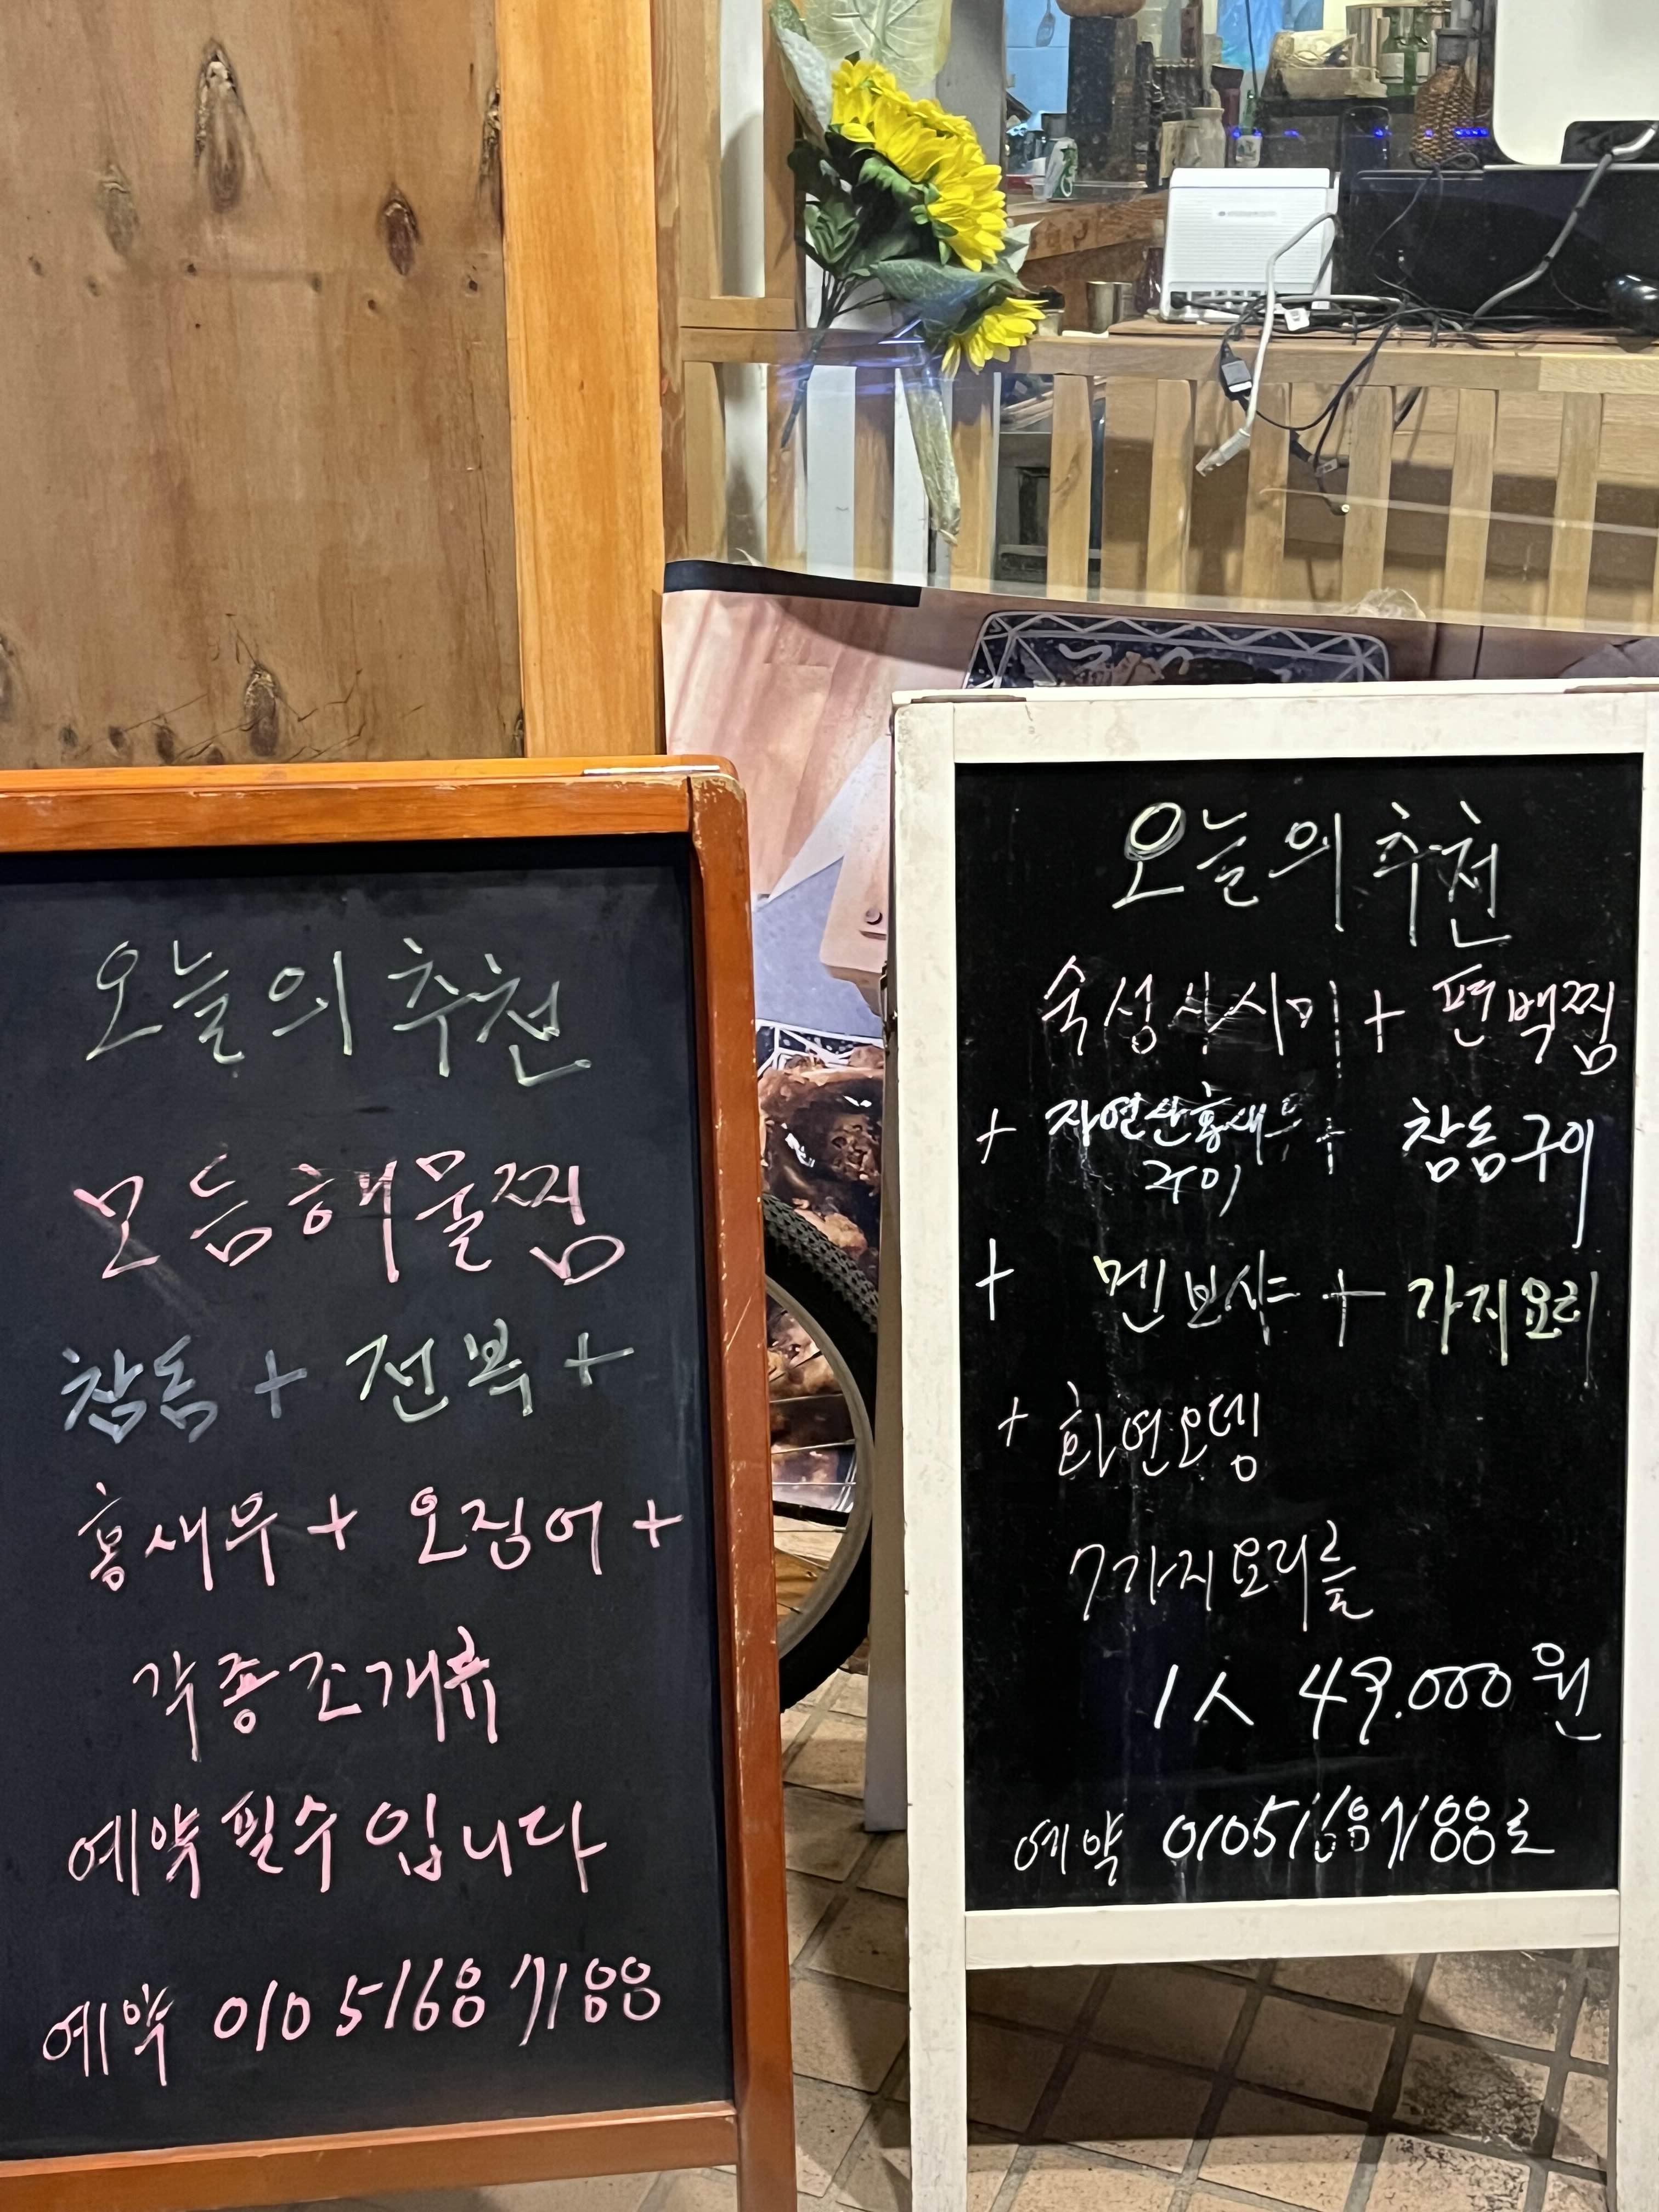 오늘의 추천
모듬해물찜
참돔 + 전복 +
홍새우 + 오징어 +
각종조개류
예약필수입니다
예약 010 5168 7188
오늘의 추천
숙성사시미 + 편백찜
+ 자연산홍새우구이 + 참돔구이
+ 멘보샤 + 가지요리
+ 화연오뎅
7가지요리를
1人 49.000원
예약 01051687188로